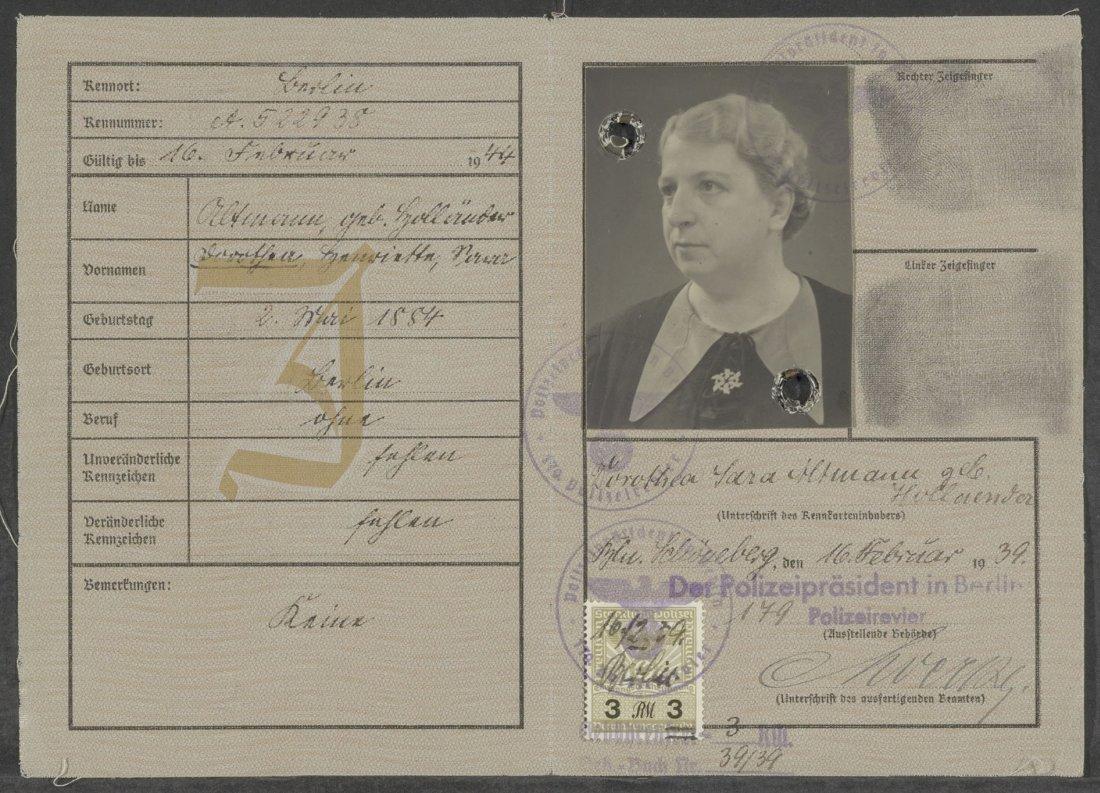 Kennort: Berlin
Kennummer: A. 522938
Gültig bis 16. Februar 1944
Name Altmann, geb. Holländer
Vornamen Dorothea, Henriette, Sara
Geburtstag 2. Mai 1884
Geburtsort Berlin
Beruf ohne
Unveränderliche Kennzeichen fehlen
Veränderliche Kennzeichen fehlen
Bemerkungen:
Keine
J
Rechter Zeigefinger
Linker Zeigefinger
Dorothea Sara Altmann geb.
Hollaender
(Unterschrift des Kennkarteninhabers)
Bln. Schöneberg, den 16. Februar 1939.
Der Polizeipräsident in Berlin
179 Polizeirevier
(Ausstellende Behörde)
(Unterschrift des ausfertigenden Beamten)
16/2. 39.
Berlin
3 RM 3
3 RM.
39/39